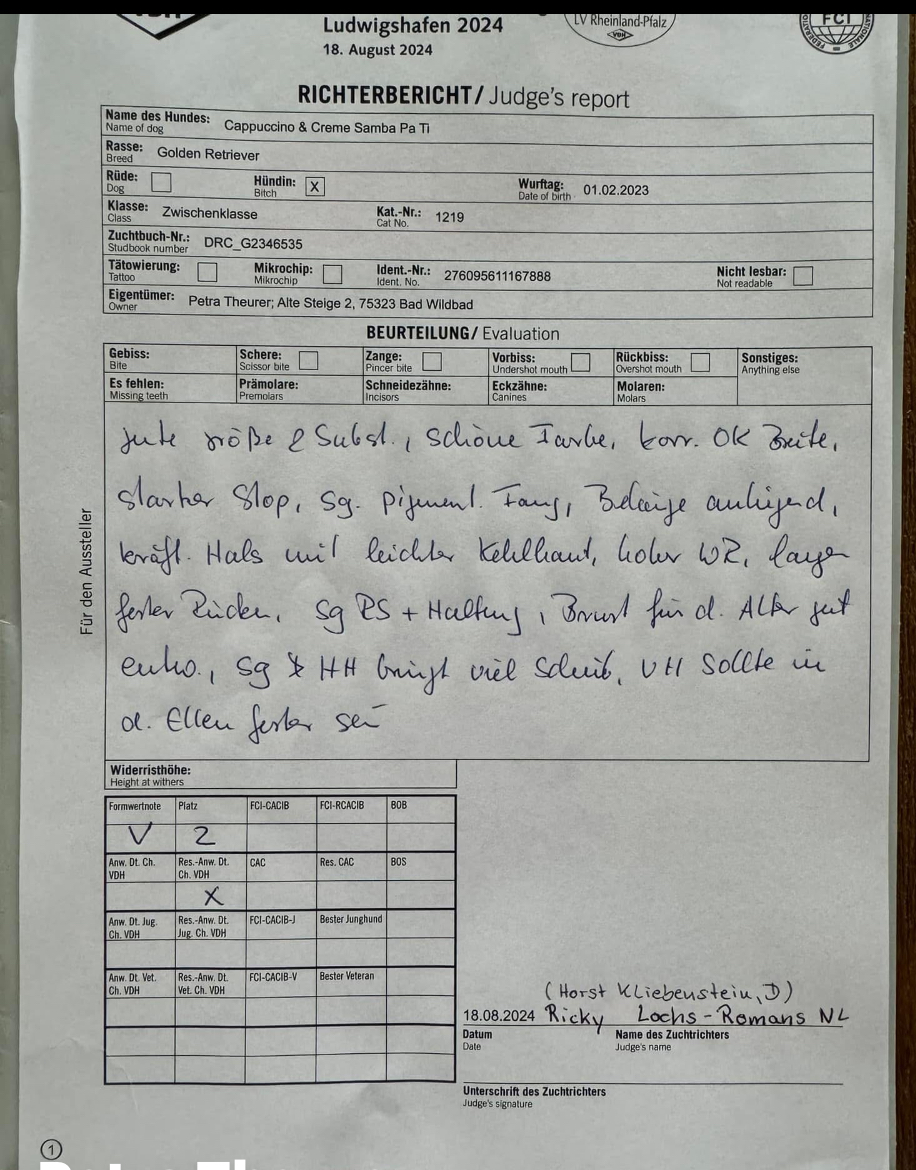 Ludwigshafen 2024
18. August 2024
LV Rheinland-Pfalz
VDH
FCI
RICHTERBERICHT/ Judge's report
Name des Hundes: Cappuccino & Creme Samba Pa Ti
Name of dog
Rasse: Golden Retriever
Breed
Rüde: Hündin: X Wurftag: 01.02.2023
Dog Bitch Date of birth
Klasse: Zwischenklasse Kat.-Nr.: 1219
Class Cat No.
Zuchtbuch-Nr.: DRC_G2346535
Studbook number
Tätowierung: Mikrochip: Ident.-Nr.: 276095611167888 Nicht lesbar:
Tattoo Mikrochip Ident. No. Not readable
Eigentümer: Petra Theurer; Alte Steige 2, 75323 Bad Wildbad
Owner
BEURTEILUNG/ Evaluation
Gebiss: Schere: Zange: Vorbiss: Rückbiss: Sonstiges:
Bite Scissor bite Pincer bite Undershot mouth Overshot mouth Anything else
Es fehlen: Prämolare: Schneidezähne: Eckzähne: Molaren:
Missing teeth Premolars Incisors Canines Molars
Für den Aussteller
gute Größe & Subst., schöne Farbe, korr. OK Breite,
starker Stop, sg. pigment. Fang, Behänge anliegend,
kräft. Hals mit leichter Kehlhaut, hoher WR, langer
fester Rücken, sg RS + Haltung, Brust für d. Alter gut
entw., sg HH bringt viel Schub, VH sollte in
d. Ellen fester sein
Widerristhöhe:
Height at withers
Formwertnote Platz FCI-CACIB FCI-RCACIB BOB
V 2
Anw. Dt. Ch. Res.-Anw. Dt. CAC Res. CAC BOS
VDH Ch. VDH
X
Anw. Dt. Jug. Res.-Anw. Dt. FCI-CACIB-J Bester Junghund
Ch. VDH Jug. Ch. VDH
Anw. Dt. Vet. Res.-Anw. Dt. FCI-CACIB-V Bester Veteran
Ch. VDH Vet. Ch. VDH
(Horst Kliebenstein, D)
18.08.2024 Ricky Lochs-Romans NL
Datum Name des Zuchtrichters
Date Judge's name
Unterschrift des Zuchtrichters
Judge's signature
1